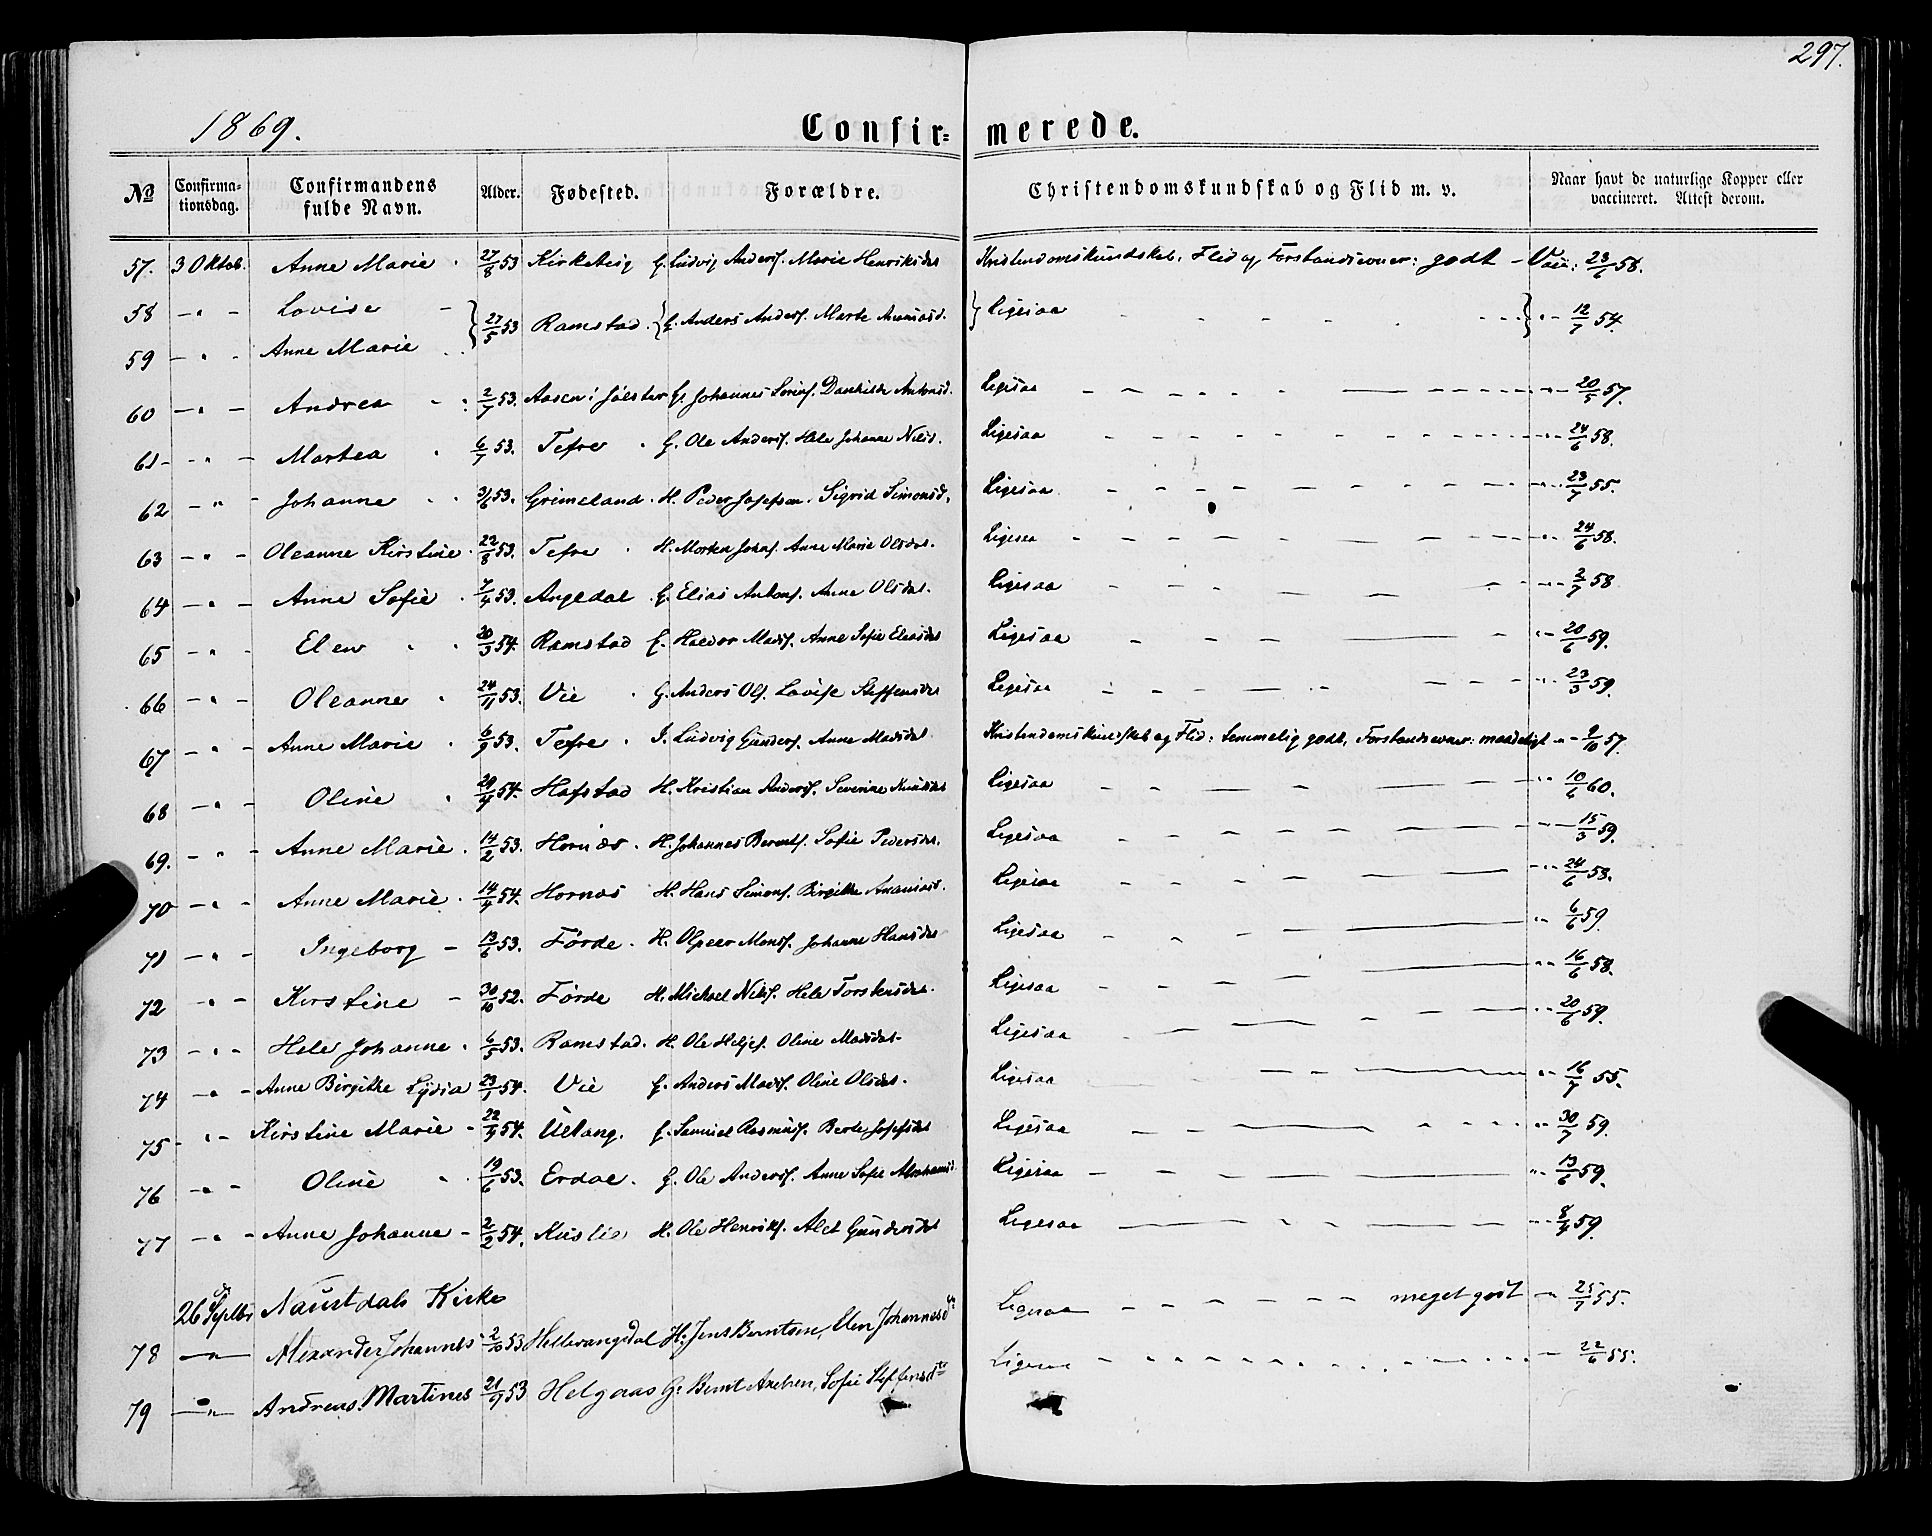 297.
1869. Confir= merede.
No Confirma-tionsdag. Confirmandens fulde Navn. Alder. Fødested. Forældre. Christendomskundskab og Flid m. v. Naar havt de naturlige Kopper eller vaccineret. Attest derom.
57. 3 Oktob. Anne Marie 27/8 53 Kirketeig G. Ludvig Anders. Marie Henriksdat Kristendomskundskab, Flid og Forstandsevner: godt - Vacc: 23/6 58.
58 - " - Lovise - } 27/5 53 Ramstad. { G. Anders Anders. Marte Ananiasd. } Ligesaa } " - 12/7 54.
59 - " - Anne Marie
60 - " - Andrea 2/7 53. Aasen i Jølster G. Johannes Dorthea Antonsd. Ligesaa - " - 20/5 57.
61 - " - Martea 6/7 53. Tefre G. Ole Anders. Hele Johanne Nilsd. Ligesaa - " - 24/6 58.
62 - " - Johanne 3/6 53. Grimeland H. Peder Josefsen. Sigrid Simonsd. Ligesaa - " - 23/7 55.
63 - " - Oleanne Kirstine 22/8 53. Tefre H. Morten Johns. Anne Marie Olsdat. Ligesaa - " - 24/6 58.
64 - " - Anne Sofie 7/4 53. Angedal G. Elias Antons. Anne Olsdat. Ligesaa - " - 2/7 58
65 - " - Elen 20/3 54. Ramstad G. Haldor Mads. Anne Sofie Eliasdat Ligesaa " - 20/6 59.
66 - " - Oleanne 24/11 53. Vie G. Anders Ols. Lovise Steffensdat Ligesaa - " - 23/3 59.
67 - " - Anne Marie 6/9 53. Tefre I. Ludvig Gunders. Anne Madsdat Kristendomskundskab og Flid: temmelig godt, Forstandsevner: maadeligt - " - 9/10 57.
68 - " - Oline 20/4 54. Hafstad H. Kristian Anders. Severine Knutsdat Ligesaa - " - 10/6 60.
69. - " - Anne Marie 14/2 53. Hornæs H. Johannes Bernts. Sofie Pedersdat. Ligesaa - " - 15/3 59.
70 - " - Anne Marie 14/4 54. Hornæs H. Hans Simons. Birgitte Ananiasd. Ligesaa - " - 24/6 53.
71 - " - Ingeborg - 13/6 53. Førde. H. Olpeer Mons. Johanne Hansdat Ligesaa " - 6/6 59.
72 - " - Kirstine - 30/10 52. Førde H. Michael Nils. Hele Torstensdat. Ligesaa - " - 16/6 58.
73 - " - Hele Johanne 6/5 53. Ramstad. H. Ole Heljes. Oline Madsdat Ligesaa - " - 20/6 59.
74 - " - Anne Birgitte Lydia 23/1 54. Vie G. Anders Mads. Oline Olsdat. Ligesaa " - 16/7 55.
75 - " - Kirstine Marie - 22/4 54. Ullang. G. Samuel Rasmus. Berte Josefsdat Ligesaa " - 30/7 59.
76 - " - Oline 19/6 53. Erdal. G. Ole Anders. Anne Sofie Abrahamsd. Ligesaa " - 13/6 59.
77 - " - Anne Johanne - 2/2 54. Kuslie H. Ole Henriks. Alet Gundersdat Ligesaa - " - 8/4 59.
26 Septbr Naustdals Kirke
78 - " - Alexander Johannes 2/10 53 Hellevangsdal H: Jens Berntsen, Elen Johannesdtr Ligesaa meget godt - 25/7 55.
79 - " - Andreas Martines 21/9 53 Helgaas G: Bernt Axelsen, Sofie Steffensdtr Ligesaa - 22/6 55.